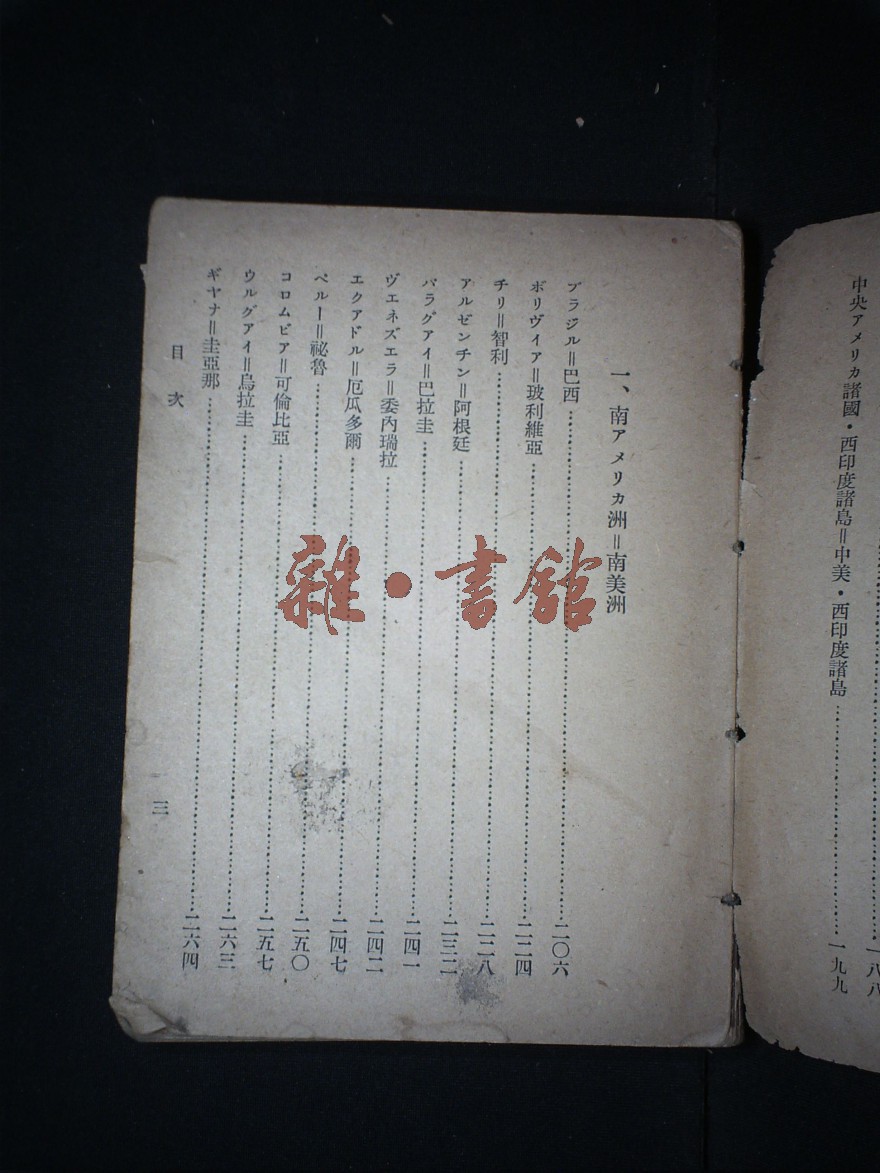 一八八
中央アメリカ諸國・西印度諸島＝中美・西印度諸島………一九九
一、南アメリカ洲＝南美洲
ブラジル＝巴西………二〇六
ボリヴィア＝玻利維亞………二二四
チリ＝智利………二二八
アルゼンチン＝阿根廷………二三二
パラグアイ＝巴拉圭………二四一
ヴエネズエラ＝委內瑞拉………二四二
エクアドル＝厄瓜多爾………二四七
ペルー＝祕魯………二五〇
コロムビア＝可倫比亞………二五七
ウルグアイ＝烏拉圭………二六三
ギヤナ＝圭亞那………二六四
目次
三
雜・書館